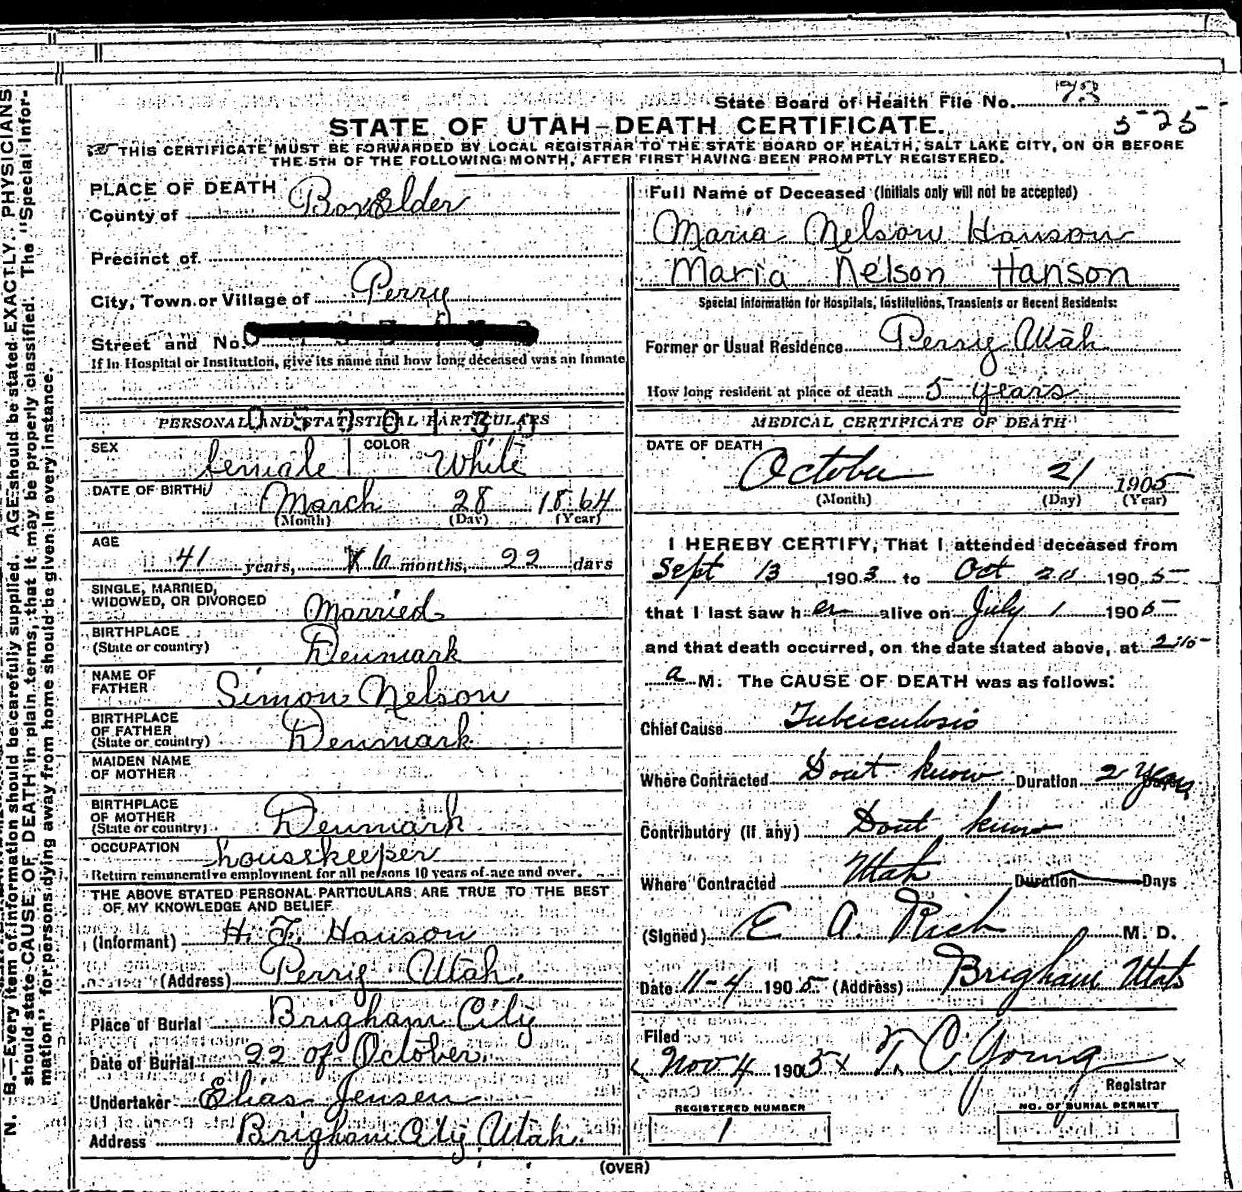 State Board of Health File No. 73
5-25
STATE OF UTAH—DEATH CERTIFICATE.
THIS CERTIFICATE MUST BE FORWARDED BY LOCAL REGISTRAR TO THE STATE BOARD OF HEALTH, SALT LAKE CITY, ON OR BEFORE
THE 5TH OF THE FOLLOWING MONTH, AFTER FIRST HAVING BEEN PROMPTLY REGISTERED.
PLACE OF DEATH
County of Box Elder
Precinct of
City, Town or Village of Perry
Street and No.
If in Hospital or Institution, give its name and how long deceased was an Inmate
PERSONAL AND STATISTICAL PARTICULARS
SEX female COLOR White
DATE OF BIRTH March 28 1864
(Month) (Day) (Year)
AGE
41 years, 6 months, 22 days
SINGLE, MARRIED,
WIDOWED, OR DIVORCED Married
BIRTHPLACE
(State or country) Denmark
NAME OF
FATHER Simon Nelson
BIRTHPLACE
OF FATHER
(State or country) Denmark
MAIDEN NAME
OF MOTHER
BIRTHPLACE
OF MOTHER
(State or country) Denmark
OCCUPATION housekeeper
Return remunerative employment for all persons 10 years of age and over.
THE ABOVE STATED PERSONAL PARTICULARS ARE TRUE TO THE BEST
OF MY KNOWLEDGE AND BELIEF
(Informant) H. F. Hanson
(Address) Perry Utah.
Place of Burial Brigham City
Date of Burial 22 of October
Undertaker Elias Jensen
Address Brigham City, Utah.
Full Name of Deceased (Initials only will not be accepted)
Maria Nelson Hanson
Maria Nelson Hanson
Special Information for Hospitals, Institutions, Transients or Recent Residents:
Former or Usual Residence Perry Utah
How long resident at place of death 5 years
MEDICAL CERTIFICATE OF DEATH
DATE OF DEATH
October 21 1905
(Month) (Day) (Year)
I HEREBY CERTIFY, That I attended deceased from
Sept 13 1903 to Oct 1905
that I last saw her alive on July 1 1905
and that death occurred, on the date stated above, at
a M. The CAUSE OF DEATH was as follows:
Chief Cause Tuberculosis
Where Contracted Dont know Duration 2 Years
Contributory (if any) Dont know
Where Contracted Utah Duration Days
(Signed) E A. Rich M. D.
Date 11-4 1905 (Address) Brigham Utah
Filed
Nov 4 1905 T. C. Young
Registrar
REGISTERED NUMBER
1
NO. OF BURIAL PERMIT
(OVER)
N. B.—Every item of information should be carefully supplied. AGE should be stated EXACTLY. PHYSICIANS
should state CAUSE OF DEATH in plain terms, that it may be properly classified. The "Special Infor-
mation" for persons dying away from home should be given in every instance.